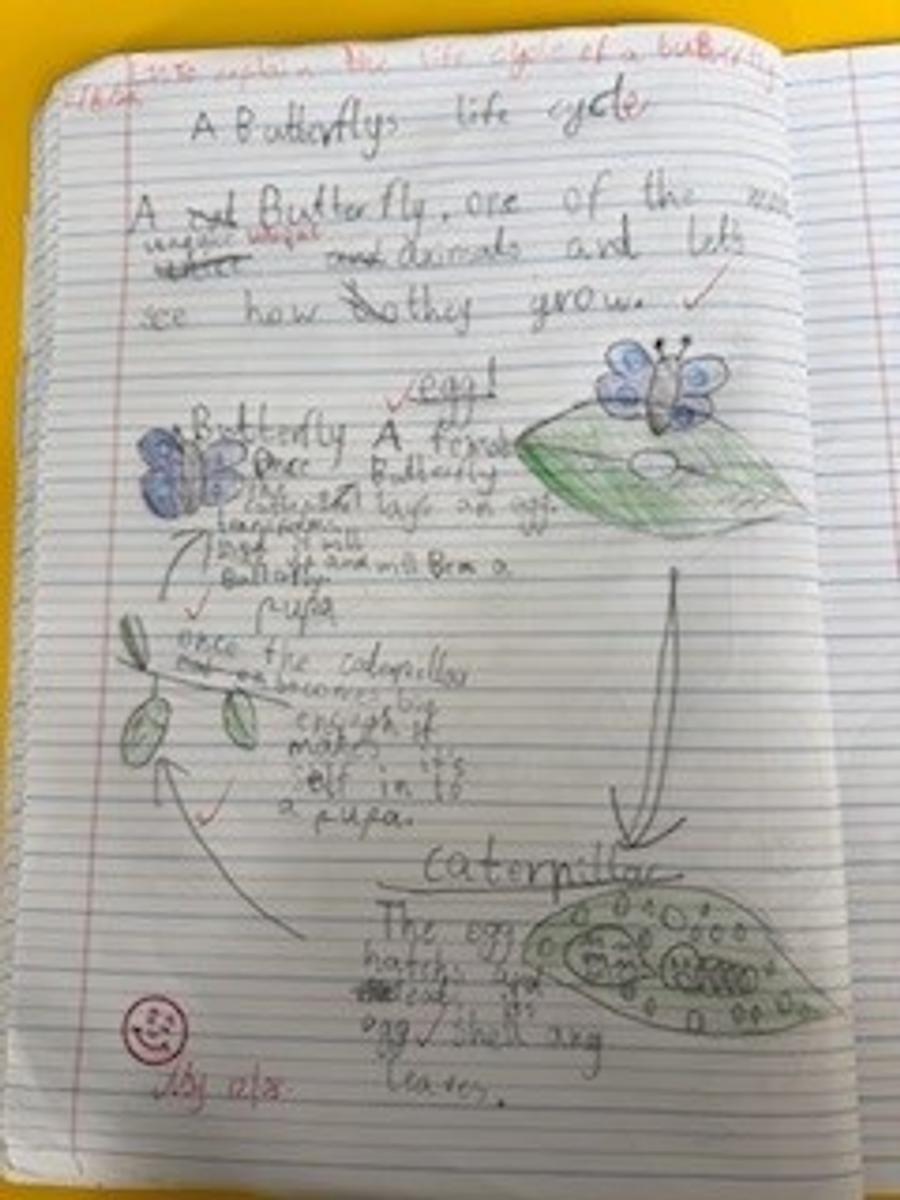 to explain the life cycle of a butterfly
A Butterflys life cycle
A Butterfly, one of the
unique animals and lets
see how they grow.
egg!
A female
Butterfly
lays an egg.
Butterfly
Once
the
caterpillar
it will
and will Become a
Butterfly.
pupa
once the caterpillar
becomes big
enough it
makes it's
self in to
a pupa.
caterpillar
The egg
hatchs and
eat it's
egg shell and
leaves.